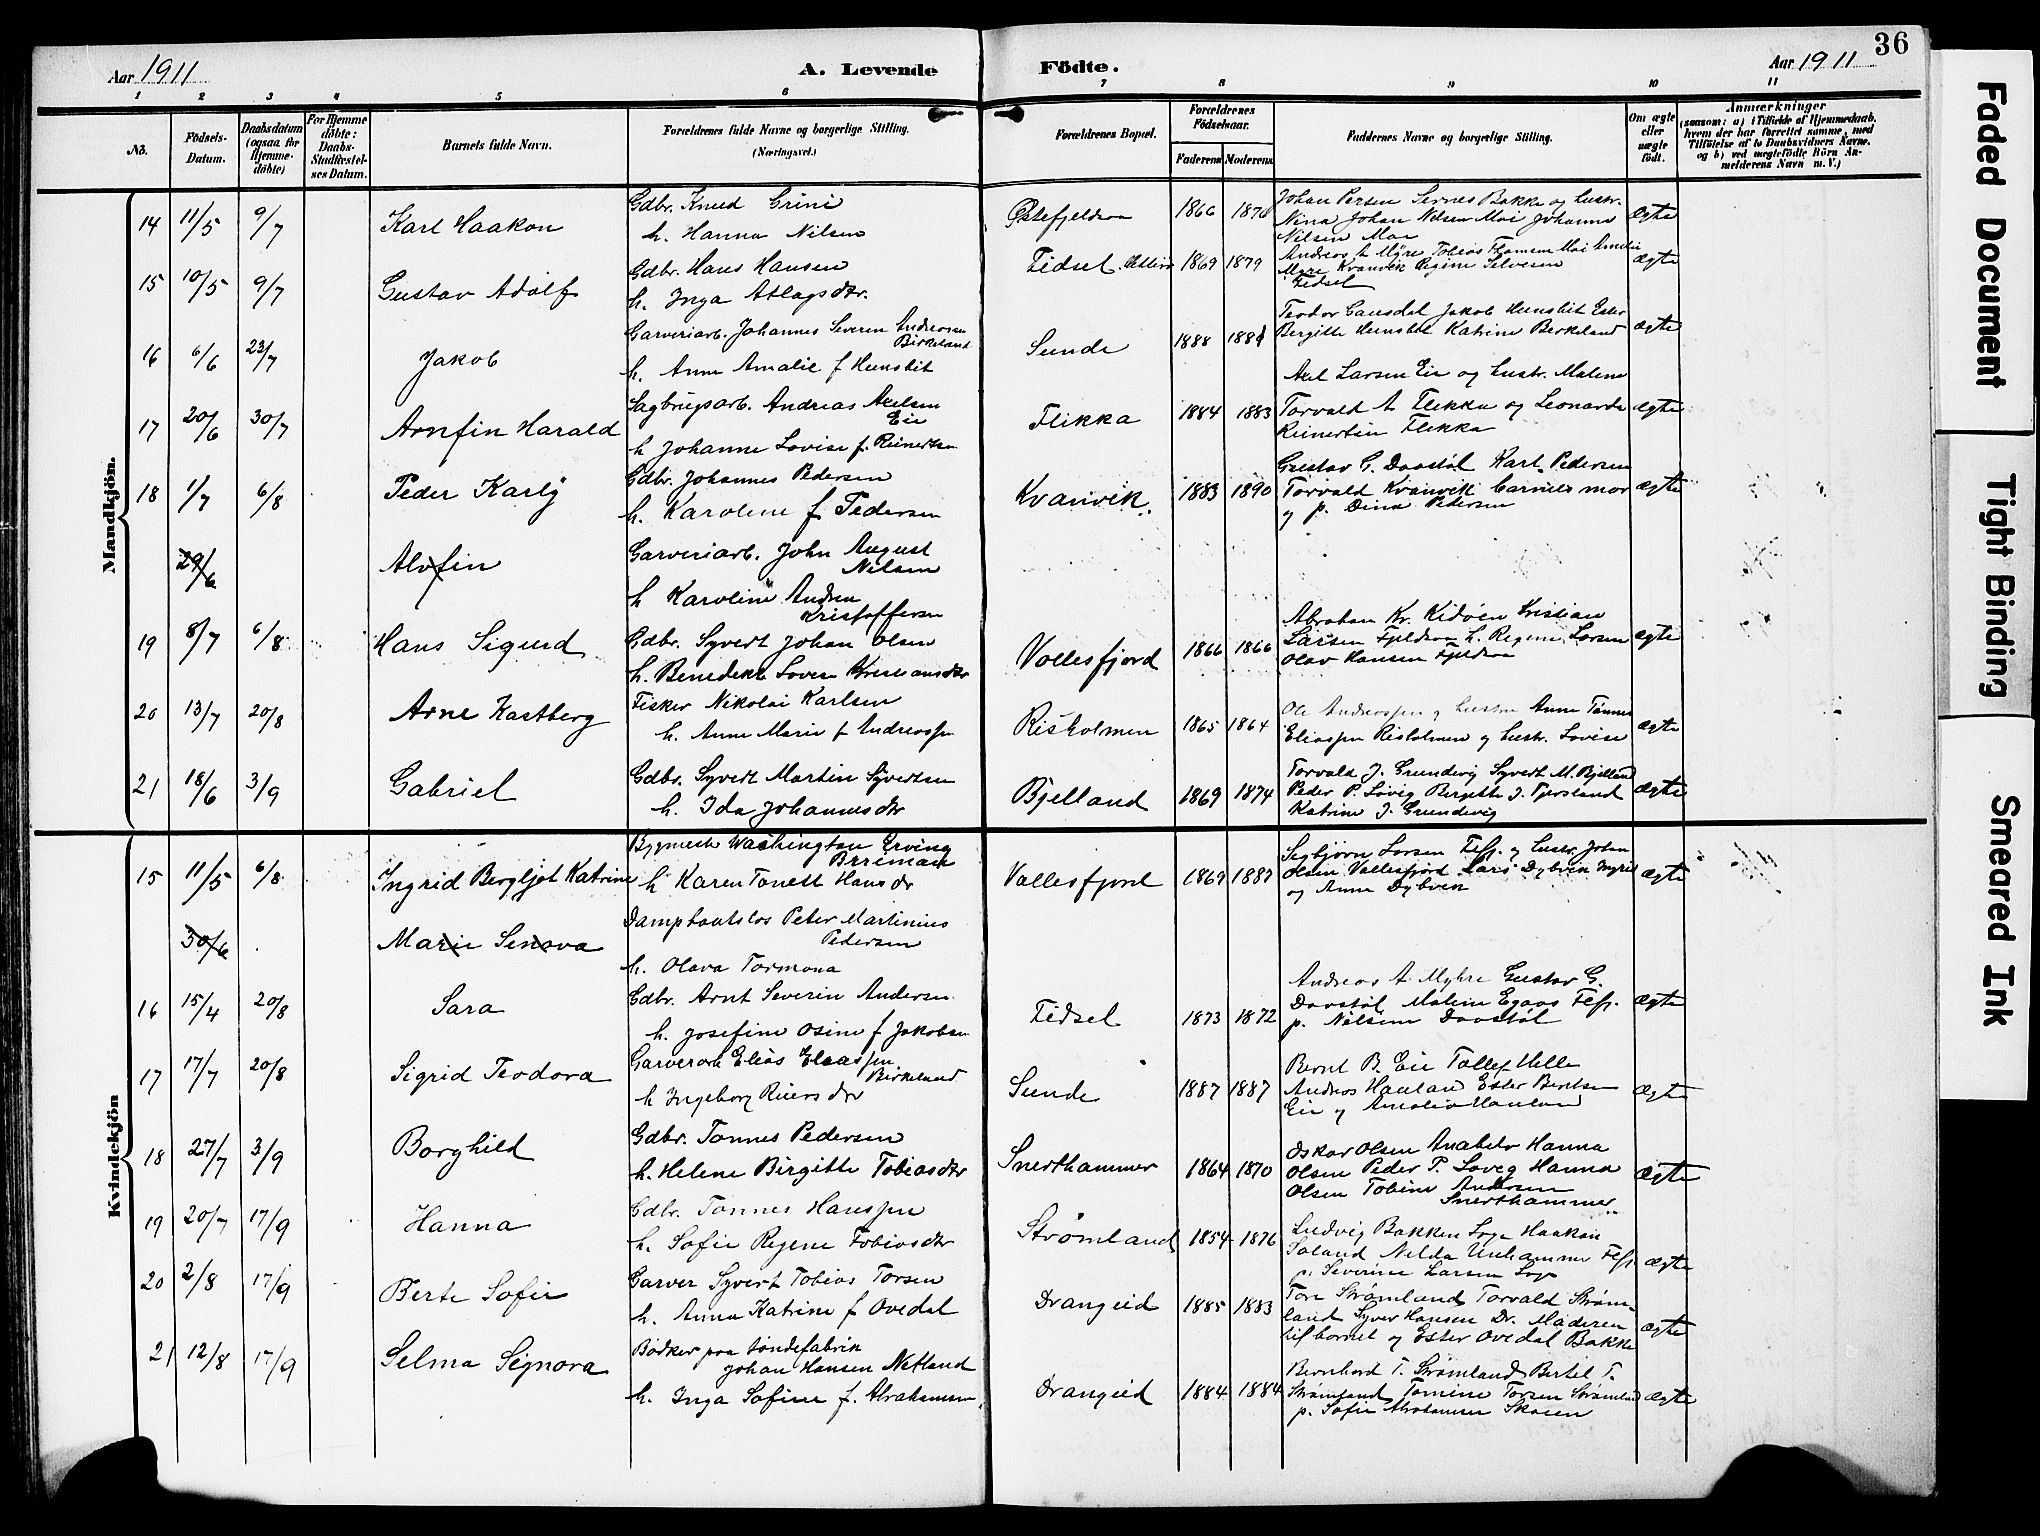 36
Aar 1911 A. Levende Födte. Aar 1911
1 2 3 4 5 6 7 8 9 10 11
No. Födsels-Datum. Daabsdatum (ogsaa for Hjemmedöbte) For Hjemmedöbte: Daabs-Stadfæstelses Datum. Barnets fulde Navn. Forældrenes fulde Navne og borgerlige Stilling. (Næringsvei.) Forældrenes Bopæl. Forældrenes Födselsaar. Faderens Moderens Faddernes Navne og borgerlige Stilling. Om ægte eller uægte födt. Anmærkninger (saasom: a) i Tilfælde af Hjemmedaab, hvem der har forrettet samme, med Tilföielse af to Daabsvidners Navne, og b) ved uægtefödte Börn Anmelderens Navn m. V.)
Mandkjön.
14 11/5 9/7 Karl Haakon Gdbr. Knud Grini
h. Hanna Nilsen 1866 Johan Persen Sernes Bakke og hustr.
Nina Johan Nilsen Moi Johanne
Nilsen Moi ægte
15 10/5 9/7 Gustav Adolf Gdbr. Hans Hansen
h. Inga Atlagsdtr. Fidsel 1869 1879 Andreas A Myre Tobias Thomsen Moi Amalie
Myre Kvanvik Regine Silversen
Fidsel ægte
16 6/6 23/7 Jakob Garveriarb. Johannes Severin Andreasen
Birkeland
h. Anne Amalie f Hunsbit Sunde 1888 Teodor Gausdal Jakob Hunsbit Ester
Bergitte Hunsbit Katrine Birkeland ægte
17 20/6 30/7 Arnfin Harald Sagbrugsarb. Andreas Axelsen
Eie
h Johanne Lovise f. Reinertsen Flikka 1884 1883 Axel Larsen Eie og hustr. Malene
Torvald A Flikka og Leonarda
Reinertsen Flikka ægte
18 1/7 6/8 Peder Karly Gdbr. Johannes Pedersen
h. Karoline f Pedersen Kvanvik. 1883 1890 Gustav G. Daastöl Karl Pedersen
Torvald Kvanvik barnets mor
og p. Dina Pedersen ægte
29/6 Alvfin Garveriarb. John August
Nilsen
h Karoline Andrea
Kristoffersen
19 8/7 6/8 Hans Sigurd Gdbr. Syvert Johan Olsen
h. Benedikte Lovise Kristiansdtr Vollesfjord 1866 1866 Abraham Kr. Kidöen Kristian
Larsen Fjeldsaa h. Regine Larsen
Olav Hansen Fjeldsaa ægte
20 13/7 20/8 Arne Kastberg Fisker Nikolai Karlsen
h. Anne Marie f Andreassen Risholmen 1865 1864 Ole Andreassen og hustru Anne Tönnes
Eliassen Risholmen og hustr. Lovise ægte
21 18/6 3/9 Gabriel Gdbr. Syvert Martin Syvertsen
h. Ida Johannesdtr Bjelland 1869 1874 Torvald J. Grundevig Syvert M. Bjelland
Peder P. Lövig Bergitte J. Fjersland
Katrine J. Grundevig ægte
Kvindekjön
15 11/5 6/8 Ingrid Bergljot Katrine Bygmestr Washington Erving
h Karen Tonette Hansdr Vollesfjord 1869 Olsen Vollesfjord Lars Dybvik Ingrid
og Anna Dybvik ægte
30/6 Marie Senova Dampbaatslos Peter Martinius
Pedersen
h. Olava Tormona
16 15/4 20/8 Sara Gdbr. Arnt Severin Andersen
h. Josefine Osine f Jakobsen Fidsel 1873 1872 Andreas A. Myhre Gustav G.
Daastöl Malene Egaas Flf.
p. Nilsine Daastöl ægte
17 17/7 20/8 Sigrid Teodora Garverarb Elias Eliassen
Birkeland
h Ingeborg Reiersdtr Sunde 1887 1887 Bernt B. Eie Tollef Helle
Andreas Haulan Ester Berntsen
Eie og Amalia Haulan ægte
18 27/7 3/9 Borghild Gdbr. Tonnes Pedersen
h. Helene Birgitte Tobiasdtr Snerthammer 1864 1870 Oskar Olsen Anabelv Hanna
Olsen Peder P. Loveg Hanna
Olsen Tobine Andersen
Snerthammer ægte
19 20/7 17/9 Hanna Gdbr. Tonnes Hanssen
h. Sofie Regene Tobiasdtr Strømland 1854 1876 Ludvig Bakken Loge Haakon
Soland Nilda Unhammer Flf.
p. Severine Larsen Loge ægte
20 2/8 17/9 Berte Sofie Garver Syvert Tobias Torsen
h. Anna Katrine f Ovedal Drangeid 1885 1883 Tore Strømland Torvald Strøm-
land Syver Hansen Dr. Moderen
til barnet og Ester Ovedal Bakke ægte
21 12/8 17/9 Selma Signora Bödker paa töndefabrik
Johan Hansen Netland
h. Inga Sofine f. Abrahamsen Drangeid 1884 1884 Bernhard T. Strømland Bertel T.
Strømland Tomine Torsen Strømland
p. Sofie Abrahamsen Skosen ægte
Faded Document
Tight Binding
Smeared Ink